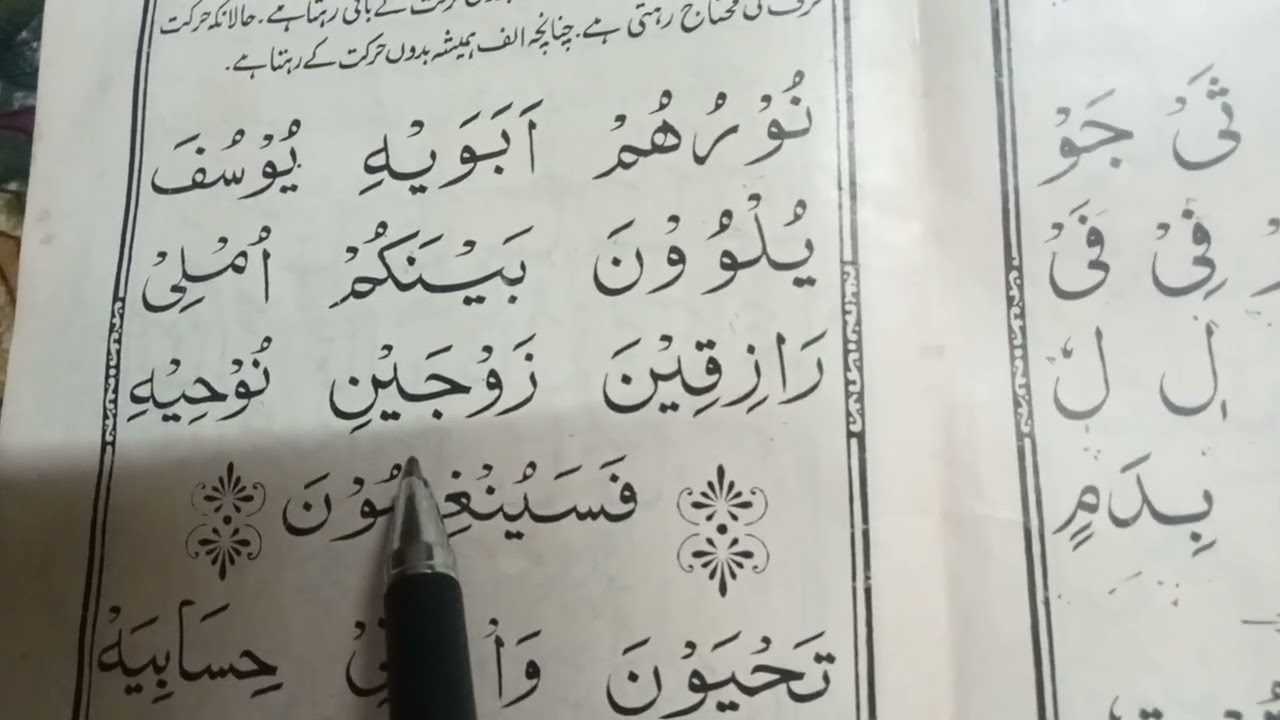 ثَىْ جَوْ
فِىْ فَىْ
بِدَمٍ
حرکت کے باقی رہتا ہے. حالانکہ حرکت
حرف کی محتاج رہتی ہے. چنانچہ الف ہمیشہ بدوں حرکت کے رہتا ہے.
نُوْرُهُمْ اَبَوَيْهِ يُوْسُفَ
يُلْوُوْنَ بَيْنَكُمْ اُمْلِىْ
رَازِقِيْنَ زَوْجَيْنِ نُوْحِيْهِ
تَحْيَوْنَ حِسَابِيَهْ